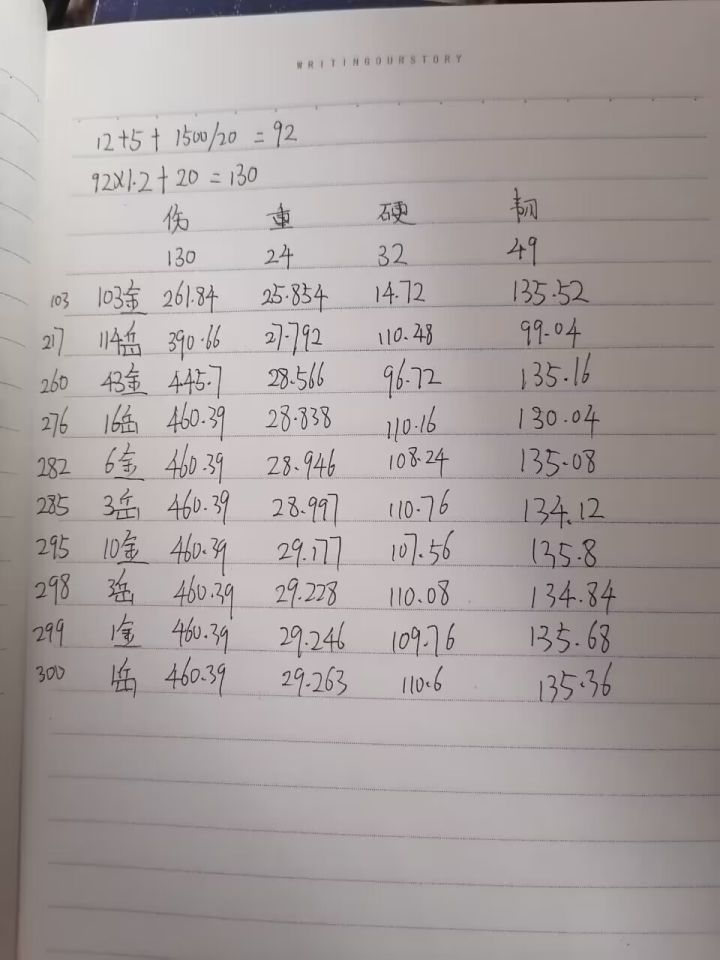 WRITINGOURSTORY
12+5+1500/20=92
92×1.2+20=130
伤 重 硬 韧
130 24 32 49
103 103金 261.84 25.854 14.72 135.52
217 114岳 390.66 27.792 110.48 99.04
260 43金 445.7 28.566 96.72 135.16
276 16岳 460.39 28.838 110.16 130.04
282 6金 460.39 28.946 108.24 135.08
285 3岳 460.39 28.997 110.76 134.12
295 10金 460.39 29.177 107.56 135.8
298 3岳 460.39 29.228 110.08 134.84
299 1金 460.39 29.246 109.76 135.68
300 1岳 460.39 29.263 110.6 135.36